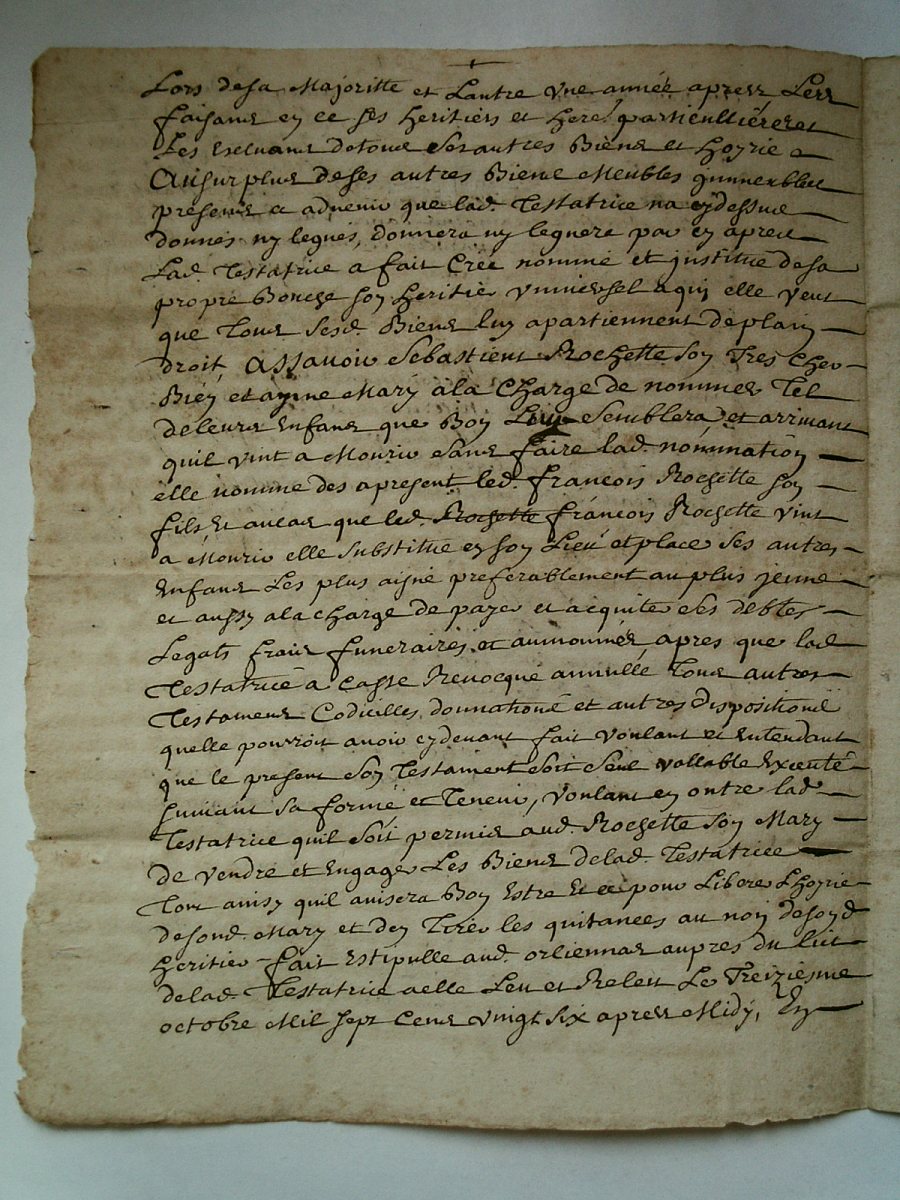 Lors desa Majoritte et Lautre Une année apres Les
faisans en ce ses heritiers et here. particulliéres et
Les Excluans detous Ses autres Biens et hoyrie
Ausurplus deses autres Biens Meubles ymmeubles
presens et advenir que lad. Testatrice na cydessus
donnés ny legués, donnera ny leguera par cy apres
Lad. Testatrice a fait Créé nommé et justitué desa
propre Bouche son heritier Universel aqui elle veut
que Tous Sesd. Biens luy apartiennent deplain
droit, Assavoir Sebastient Rochette Son Tres Cher
Bien et ayme Mary ala Charge de nommer Tel
deleurs Enfans que Bon Luy Semblera, et arrivant
quil vint a Mourir Sans faire lad. nommation
elle nomme des apresent led. francois Rochette son
fils, Et aucas que led. Rochette francois Rochette vint
a Mourir elle substitue en son Lieu et place Ses autres
Enfans Les plus aisné preferablement au plus jeune
et aussy ala charge de payer et acquiter ses debtes
Legats frais funeraires, et aumonnes apres que lad.
Testatrice a Cassé Revocqué annullé Tous autres
Testamens Codicilles, donnations et autres dispositions
quelle pourroit avoir cydevant fait voulant et Entendant
que le present Son Testament soit seul vallable Executé
suivant sa forme et Teneur, voulant en outre lad.
Testatrice quil soit permis aud. Rochette son Mary
de vendre et Engager Les Biens delad. Testatrice
Tout ainsy quil avisera Bon Estre Et ce pour Liberer Lhoyrie
desond. Mary et den Tirer les quitances au nom desond.
heritier fait Estipulle aud. orliennas aupres du lict
delad. Testatrice a elle Leu et Releu Le Treiziesme
octobre Mil sept Cens vingt six apres Midy, En